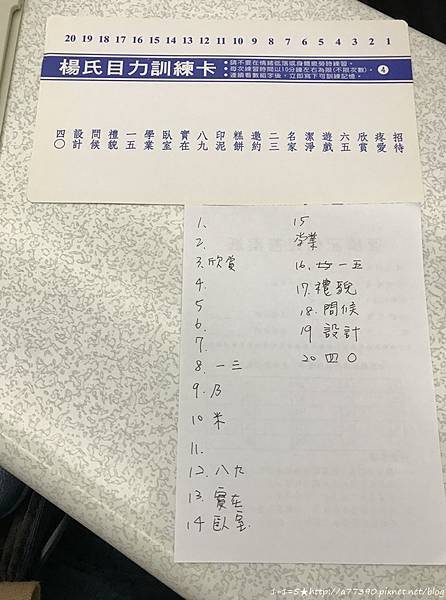 20 19 18 17 16 15 14 13 12 11 10 9 8 7 6 5 4 3 2 1
楊氏目力訓練卡
●請不要在情緒低落或身體疲勞時練習。
●每次練習時間以10分鐘左右為限(不限次數)。
●連續看數組字後,立即寫下可訓練記憶。
4
招待
疼愛
欣賞
六五
遊戲
潔淨
名家
二三
邀約
糕餅
印泥
八九
實在
臥室
學業
一五
禮貌
問候
設計
四〇
1.
2.
3.欣賞
4.
5
6.
7.
8. 一三
9.
10 米
11.
12. 八九
13. 實在
14 臥室
15
学業
16. 一五
17. 禮貌
18. 問候
19 設計
20 四〇
1+1=5★http://a77390.pixnet.net/blog